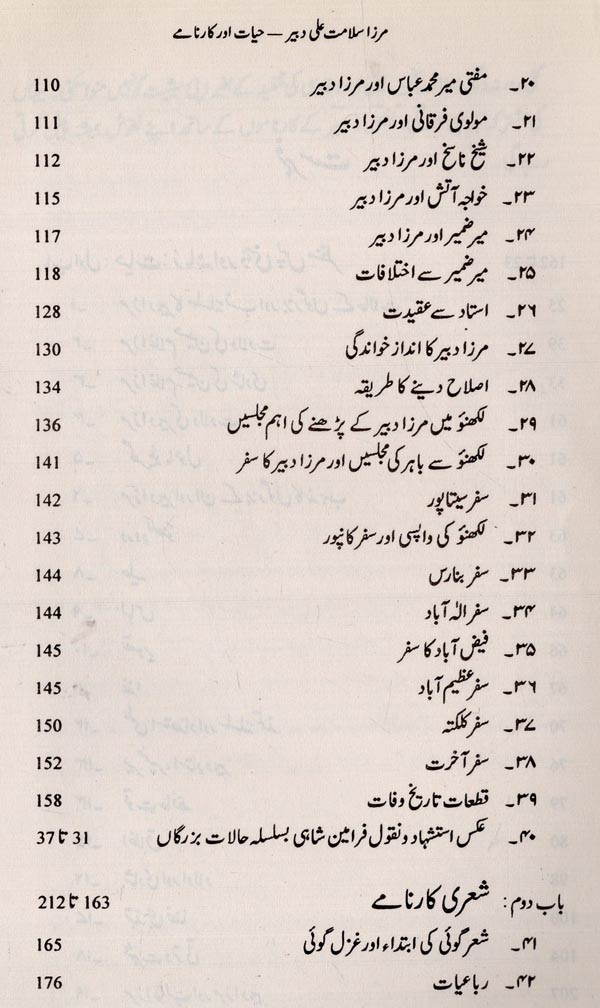 مرزا سلامت علی دبیر — حیات اور کارنامے
۲۰۔ مفتی میر محمد عباس اور مرزا دبیر 110
۲۱۔ مولوی فرقانی اور مرزا دبیر 111
۲۲۔ شیخ ناسخ اور مرزا دبیر 112
۲۳۔ خواجہ آتش اور مرزا دبیر 115
۲۴۔ میر ضمیر اور مرزا دبیر 117
۲۵۔ میر ضمیر سے اختلافات 118
۲۶۔ استاد سے عقیدت 128
۲۷۔ مرزا دبیر کا انداز خواندگی 130
۲۸۔ اصلاح دینے کا طریقہ 134
۲۹۔ لکھنؤ میں مرزا دبیر کے پڑھنے کی اہم مجلسیں 136
۳۰۔ لکھنؤ سے باہر کی مجلسیں اور مرزا دبیر کا سفر 141
۳۱۔ سفر سیتاپور 142
۳۲۔ لکھنؤ کی واپسی اور سفر کانپور 143
۳۳۔ سفر بنارس 144
۳۴۔ سفر الٰہ آباد 144
۳۵۔ فیض آباد کا سفر 145
۳۶۔ سفر عظیم آباد 145
۳۷۔ سفر کلکتہ 150
۳۸۔ سفر آخرت 152
۳۹۔ قطعات تاریخ وفات 158
۴۰۔ عکس استشہاد و نقول فرامین شاہی بسلسلہ حالات بزرگاں 31 تا 37
باب دوم: شعری کارنامے 163 تا 212
۴۱۔ شعر گوئی کی ابتداء اور غزل گوئی 165
۴۲۔ رباعیات 176